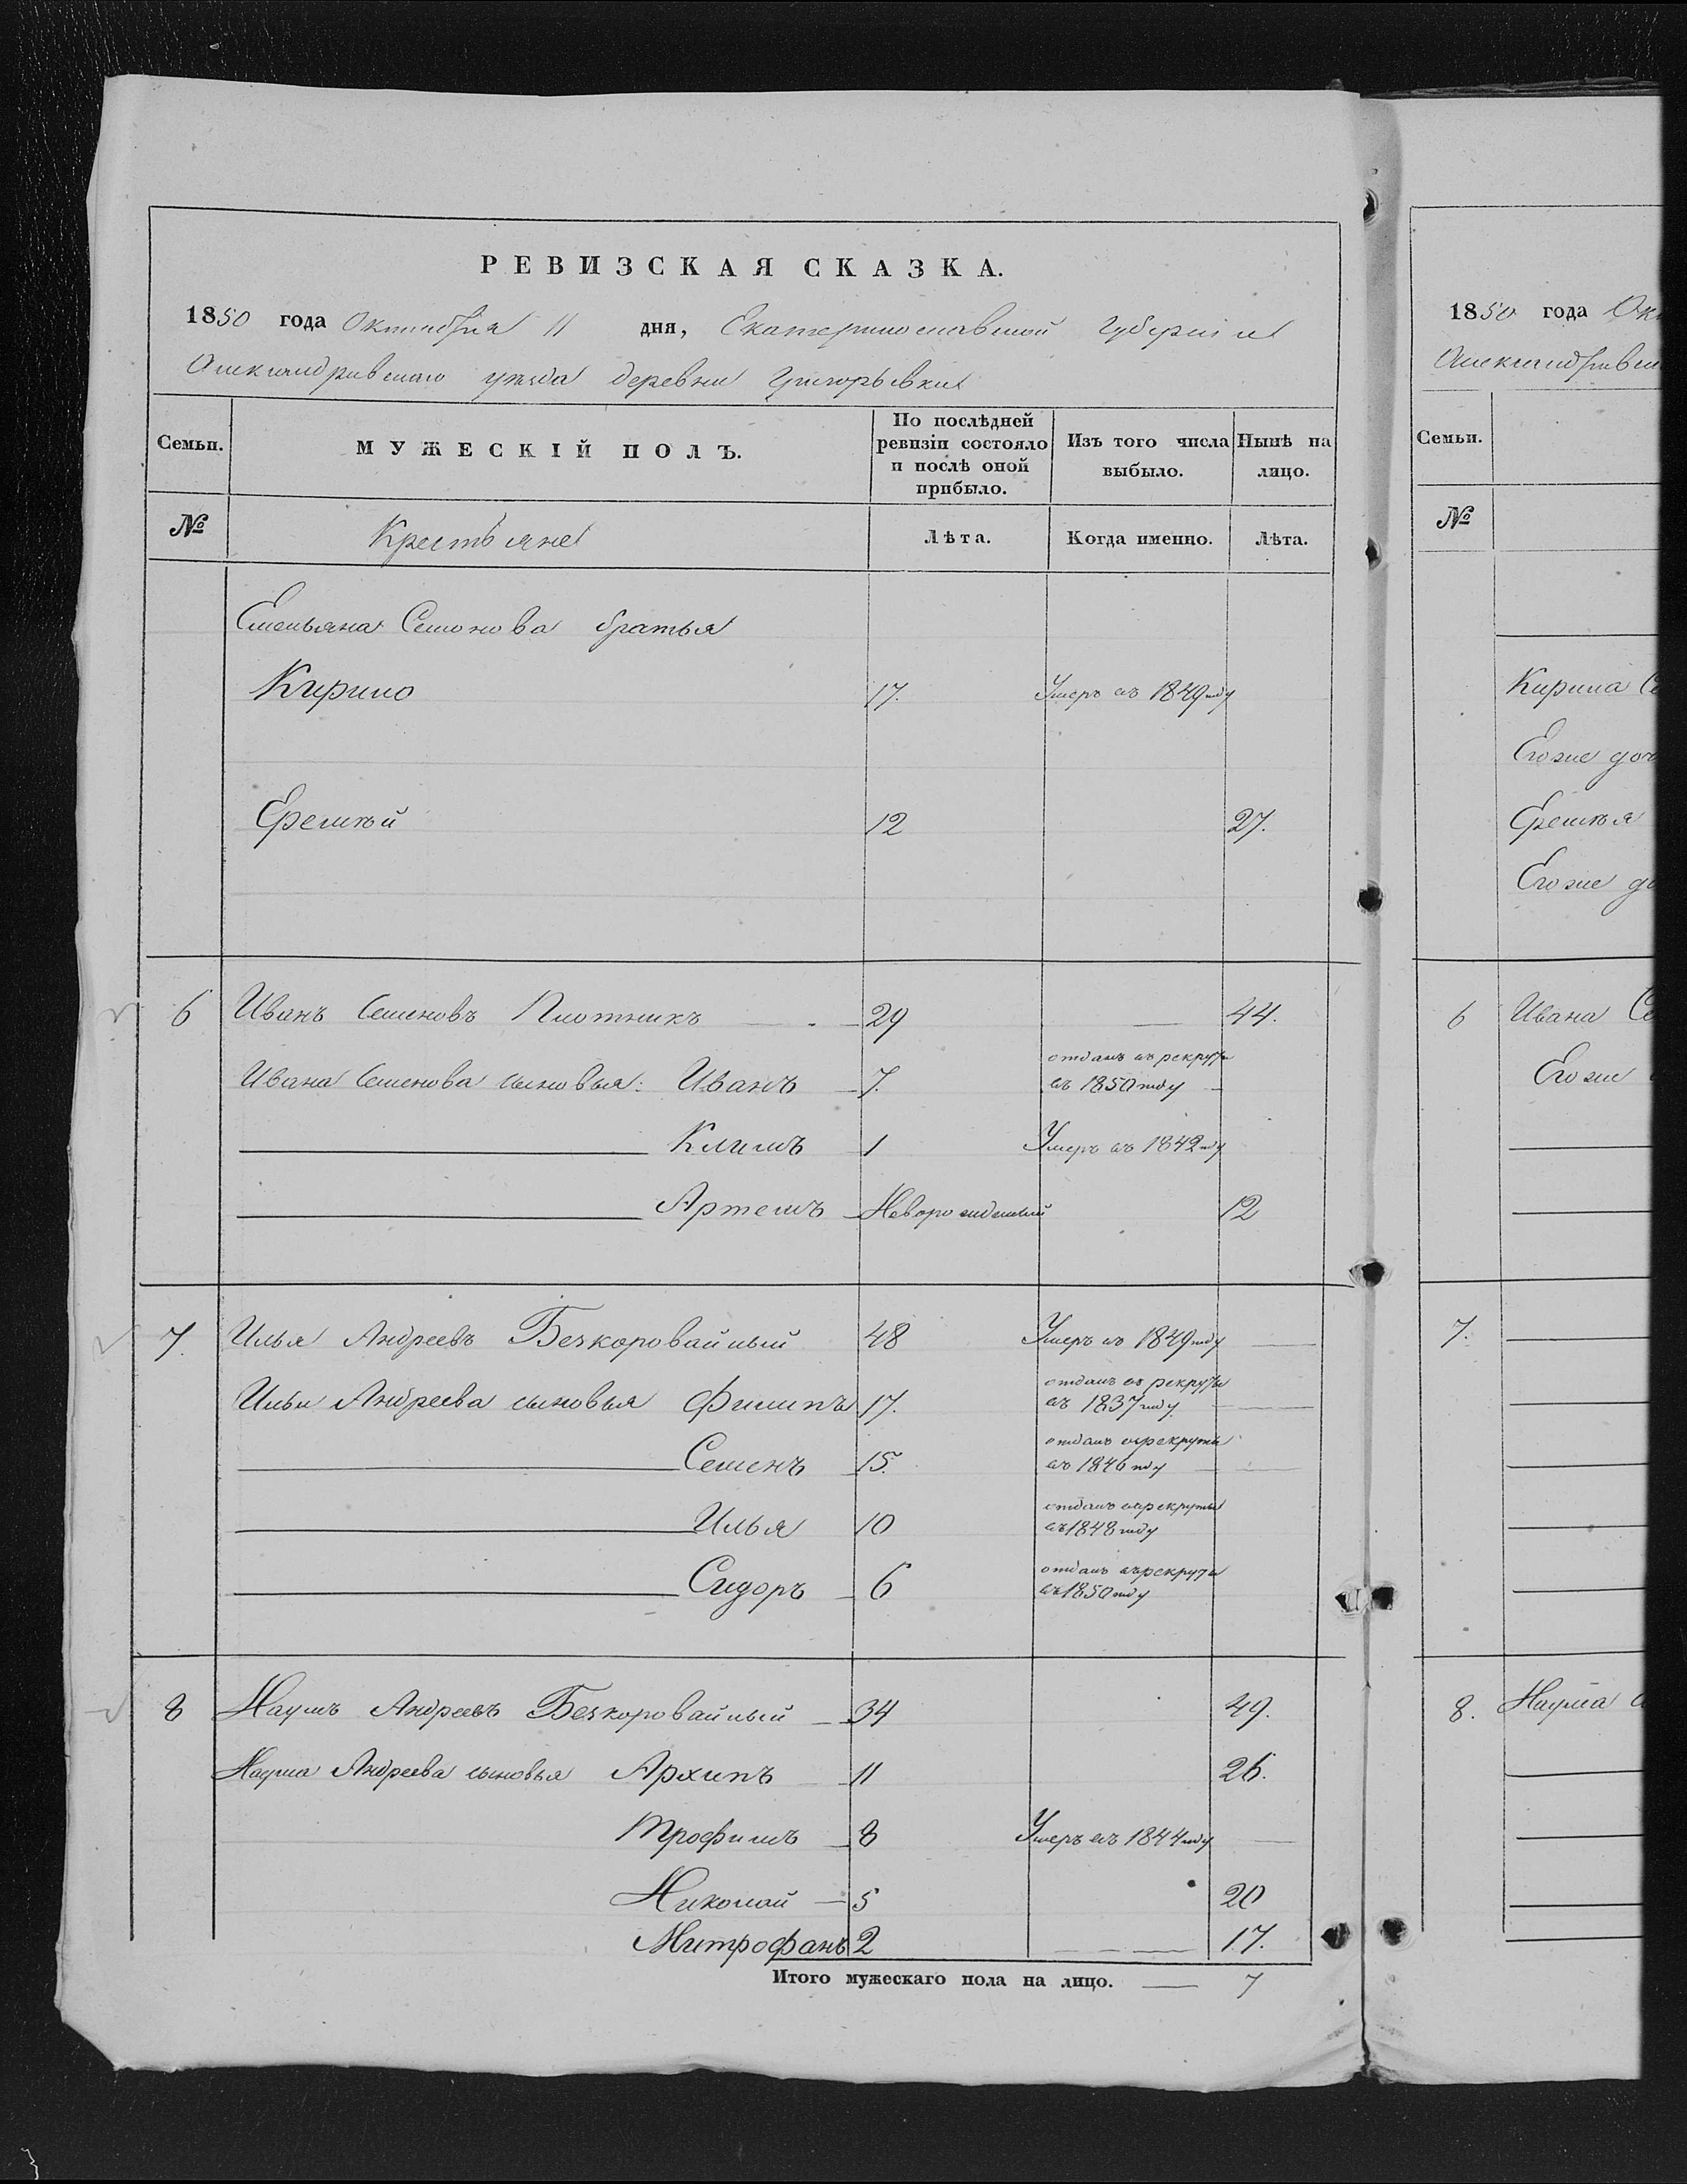 РЕВИЗСКАЯ СКАЗКА.
1850 года Октября 11 дня, Екатеринославской Губерніи
Александровскаго уѣзда деревни Григорьевки
Семьи. МУЖЕСКІЙ ПОЛЪ. По послѣдней ревизіи состояло и послѣ оной прибыло. Изъ того числа выбыло. Нынѣ на лицо.
№ Крестьяне Лѣта. Когда именно. Лѣта.
Емельяна Семенова братья
Кирило 17. Умеръ въ 1849 году
Еремѣй 12 27.
6 Иванъ Семеновъ Плотникъ 29 44.
Ивана Семенова сыновья: Иванъ 7. отданъ въ рекруты въ 1850 году
Климъ 1 Умеръ въ 1842 году
Артемъ Новорожденный 12
7. Илья Андреевъ Безкоровайный 48 Умеръ въ 1849 году
Ильи Андреева сыновья Филипъ 17. отданъ въ рекруты въ 1837 году
Семенъ 15. отданъ въ рекруты въ 1846 году
Илья 10 отданъ въ рекруты въ 1848 году
Сидоръ 6 отданъ въ рекруты въ 1850 году
8 Наумъ Андреевъ Безкоровайный 34 49.
Наума Андреева сыновья Архипъ 11 26.
Трофимъ 8 Умеръ въ 1844 году
Николай 5 20
Митрофанъ 2 17.
Итого мужескаго пола на лицо. 7
1850 года
Семьи.
№
Кирила
Егоже
Еремѣя
Егоже
6 Ивана
Егоже
7.
8. Наума